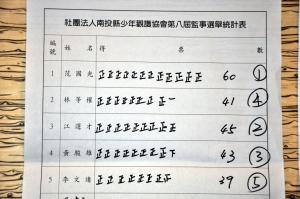 社團法人南投縣少年觀護協會第八屆監事選舉統計表
編號 姓名 得票數
1 范國光 正正正正正正正正正正正正 60 ①
2 林等權 正正正正正正正正一 41 ④
3 江運才 正正正正正正正正正 45 ②
4 黃駿雄 正正正正正正正正下 43 ③
5 李文靖 39 ⑤